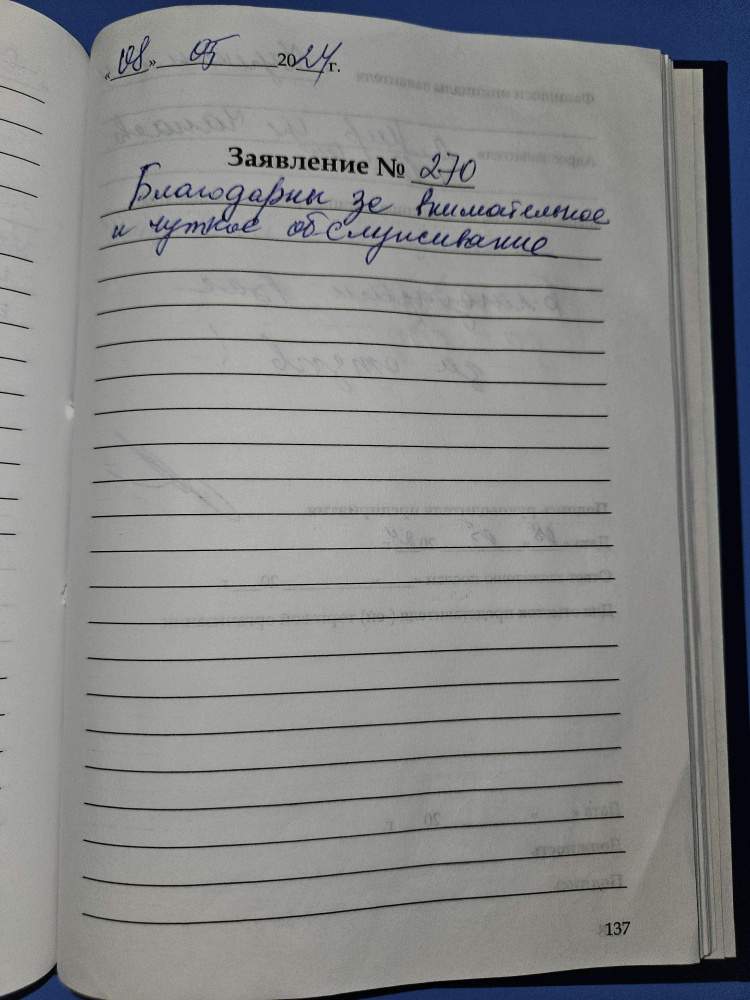 «08» 05 2024 г.
Заявление № 270
Благодарны зе внимательное
и чуткое обслуживание
137